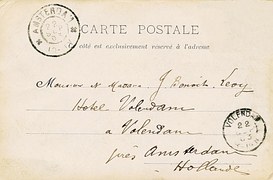 AMSTERDAM
CARTE POSTALE
côté est exclusivement réservé à l'adresse
Monsieur et Madame J. Benoit Levy
Hotel Volendam
VOLENDAM
22
à Volendam
près Amsterdam
Hollande